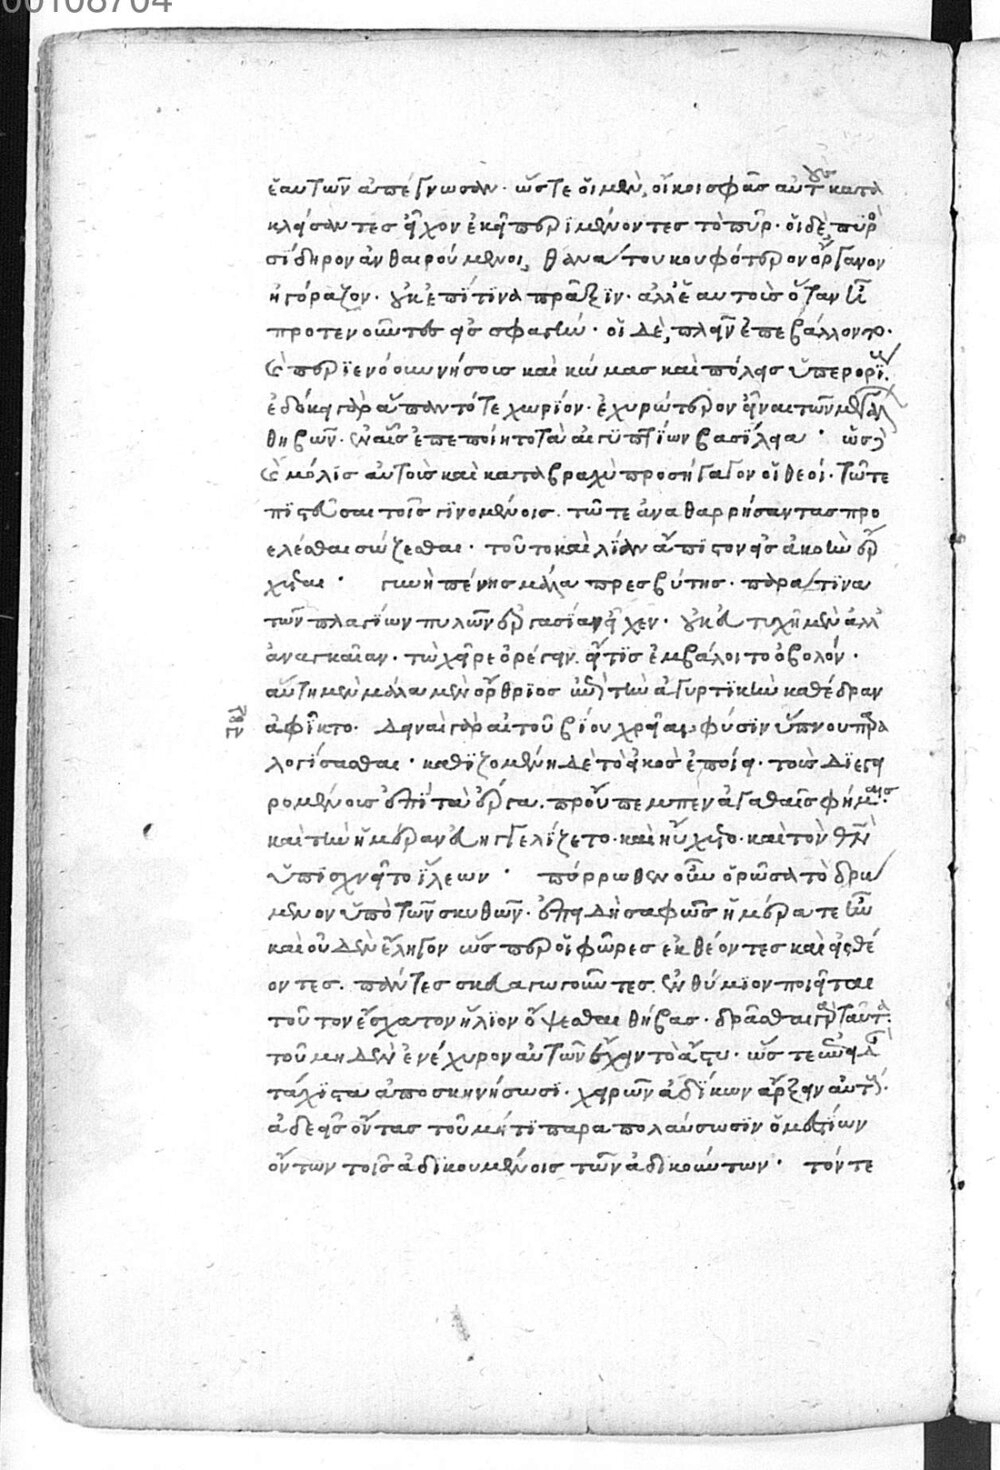 00108704
ἑαυτῶν ἀπέγνωσαν· ὥστε οἱ μὲν, οἴκοι σφᾶς αὐτοὺς κατα
κλείσαντες εἶχον ἐκεῖ περιμένοντες τὸ πῦρ· οἱ δὲ πυρὸς
σίδηρον ἀνθαιρούμενοι, θανάτου κουφότερον ὄργανον
ἠγόραζον· οὐκ ἐπί τινα πρᾶξιν· ἀλλ' ἑαυτοῖς ὅταν ᾖ
προτενοῦντες εἰς σφαγήν· οἱ δὲ, πλεῖν ἐπεβάλλοντο·
ὡς περιενόουν νήσους καὶ κώμας καὶ πόλεις ὑπερορί.
ἐδόκει γὰρ ἅπαν τότε χωρίον· ἐχυρώτερον εἶναι τῶν μεγάλων
θηβῶν· ἐν αἷς ἐπεποίητο τὰ αἰγυπτίων βασίλεια· ὡς δὲ
μόλις αὐτοὺς καὶ κατὰ βραχὺ προσήγαγον οἱ θεοί· τῷ τε
πιστεῦσαι τοῖς γινομένοις. τῷ τε ἀναθαρρήσαντας προ
ελέσθαι σώζεσθαι· τοῦτο καὶ λίαν ἄπιστον εἰς ἀκοὴν ἔρ
χεται· γυνὴ πένης μάλα πρεσβύτης· παρά τινα
τῶν πλαγίων πυλῶν ἐργασίαν εἶχεν· οὐκ εὐτυχῆ μὲν ἀλλ'
ἀναγκαίαν· τὼ χεῖρε ὀρέγειν. εἴ τις ἐμβάλοι τὸ ὀβολόν·
αὕτη μὲν μάλα μὲν ὄρθριος ἐπὶ τὴν ἀγυρτικὴν καθέδραν
ἀφῖκτο· δειναὶ γὰρ αἱ τοῦ βίου χρεῖαι, φύσιν ὕπνου παρα
λογίσασθαι· καθιζομένη δὲ τὸ εἰκὸς ἐποίει· τοὺς διεγει
ρομένους ἐπὶ τὰ ἔργα. προὔπεμπεν ἀγαθαῖς φήμαις·
καὶ τὴν ἡμέραν εὐηγγελίζετο· καὶ ηὔχετο· καὶ τὸν θεὸν
ὑπισχνεῖτο ἵλεων· πόρρωθεν οὖν ὁρῶσα τὸ δρώ
μενον ὑπὸ τῶν σκυθῶν· ἐπεὶ δὴ σαφῶς ἡμέρα τε ἦν
καὶ οὐδὲν ἔληγον ὥσπερ οἱ φῶρες ἐκθέοντες καὶ εἰσθέ
οντες. πάντες σκευαγωγοῦντες. ἐνθύμιον ποιεῖται
τοῦτον ἔσχατον ἥλιον ὄψεσθαι θήβας· δρᾶσθαι γὰρ ταῦτα.
τοῦ μηδὲν ἐνέχυρον αὐτῶν ἔχειν τὸ ἄστυ· ὥς τε ἐπειδὰν
τάχιστα ἀποσκηνήσωσι· χειρῶν ἀδίκων ἄρξειν αὐτούς·
ἀδεεῖς ὄντας τοῦ μή τι παραπολαύσωσιν ὁμεστίων
ὄντων τοῖς ἀδικουμένοις τῶν ἀδικούντων· τόν τε